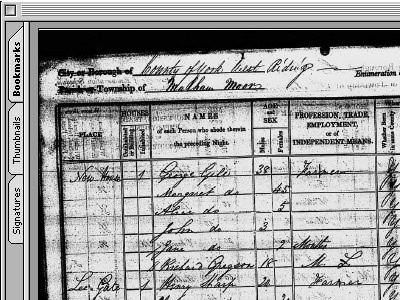 Bookmarks
Thumbnails
Signatures
City or Borough of County of York West Riding
Enumeration
Parish or Township of Malham Moor
PLACE
HOUSES
NAMES
of each Person who abode therein
the preceding Night.
AGE
and
SEX
Males
Females
PROFESSION, TRADE,
EMPLOYMENT,
or of
INDEPENDENT MEANS.
Whether Born
New House 1 George 38 Farmer
Margaret do 45
Alice do 5
John do 3
Jane do 2 Months
Richard Gregson M. S.
Lee Gate 1 Henry Sharp 20 Farmer